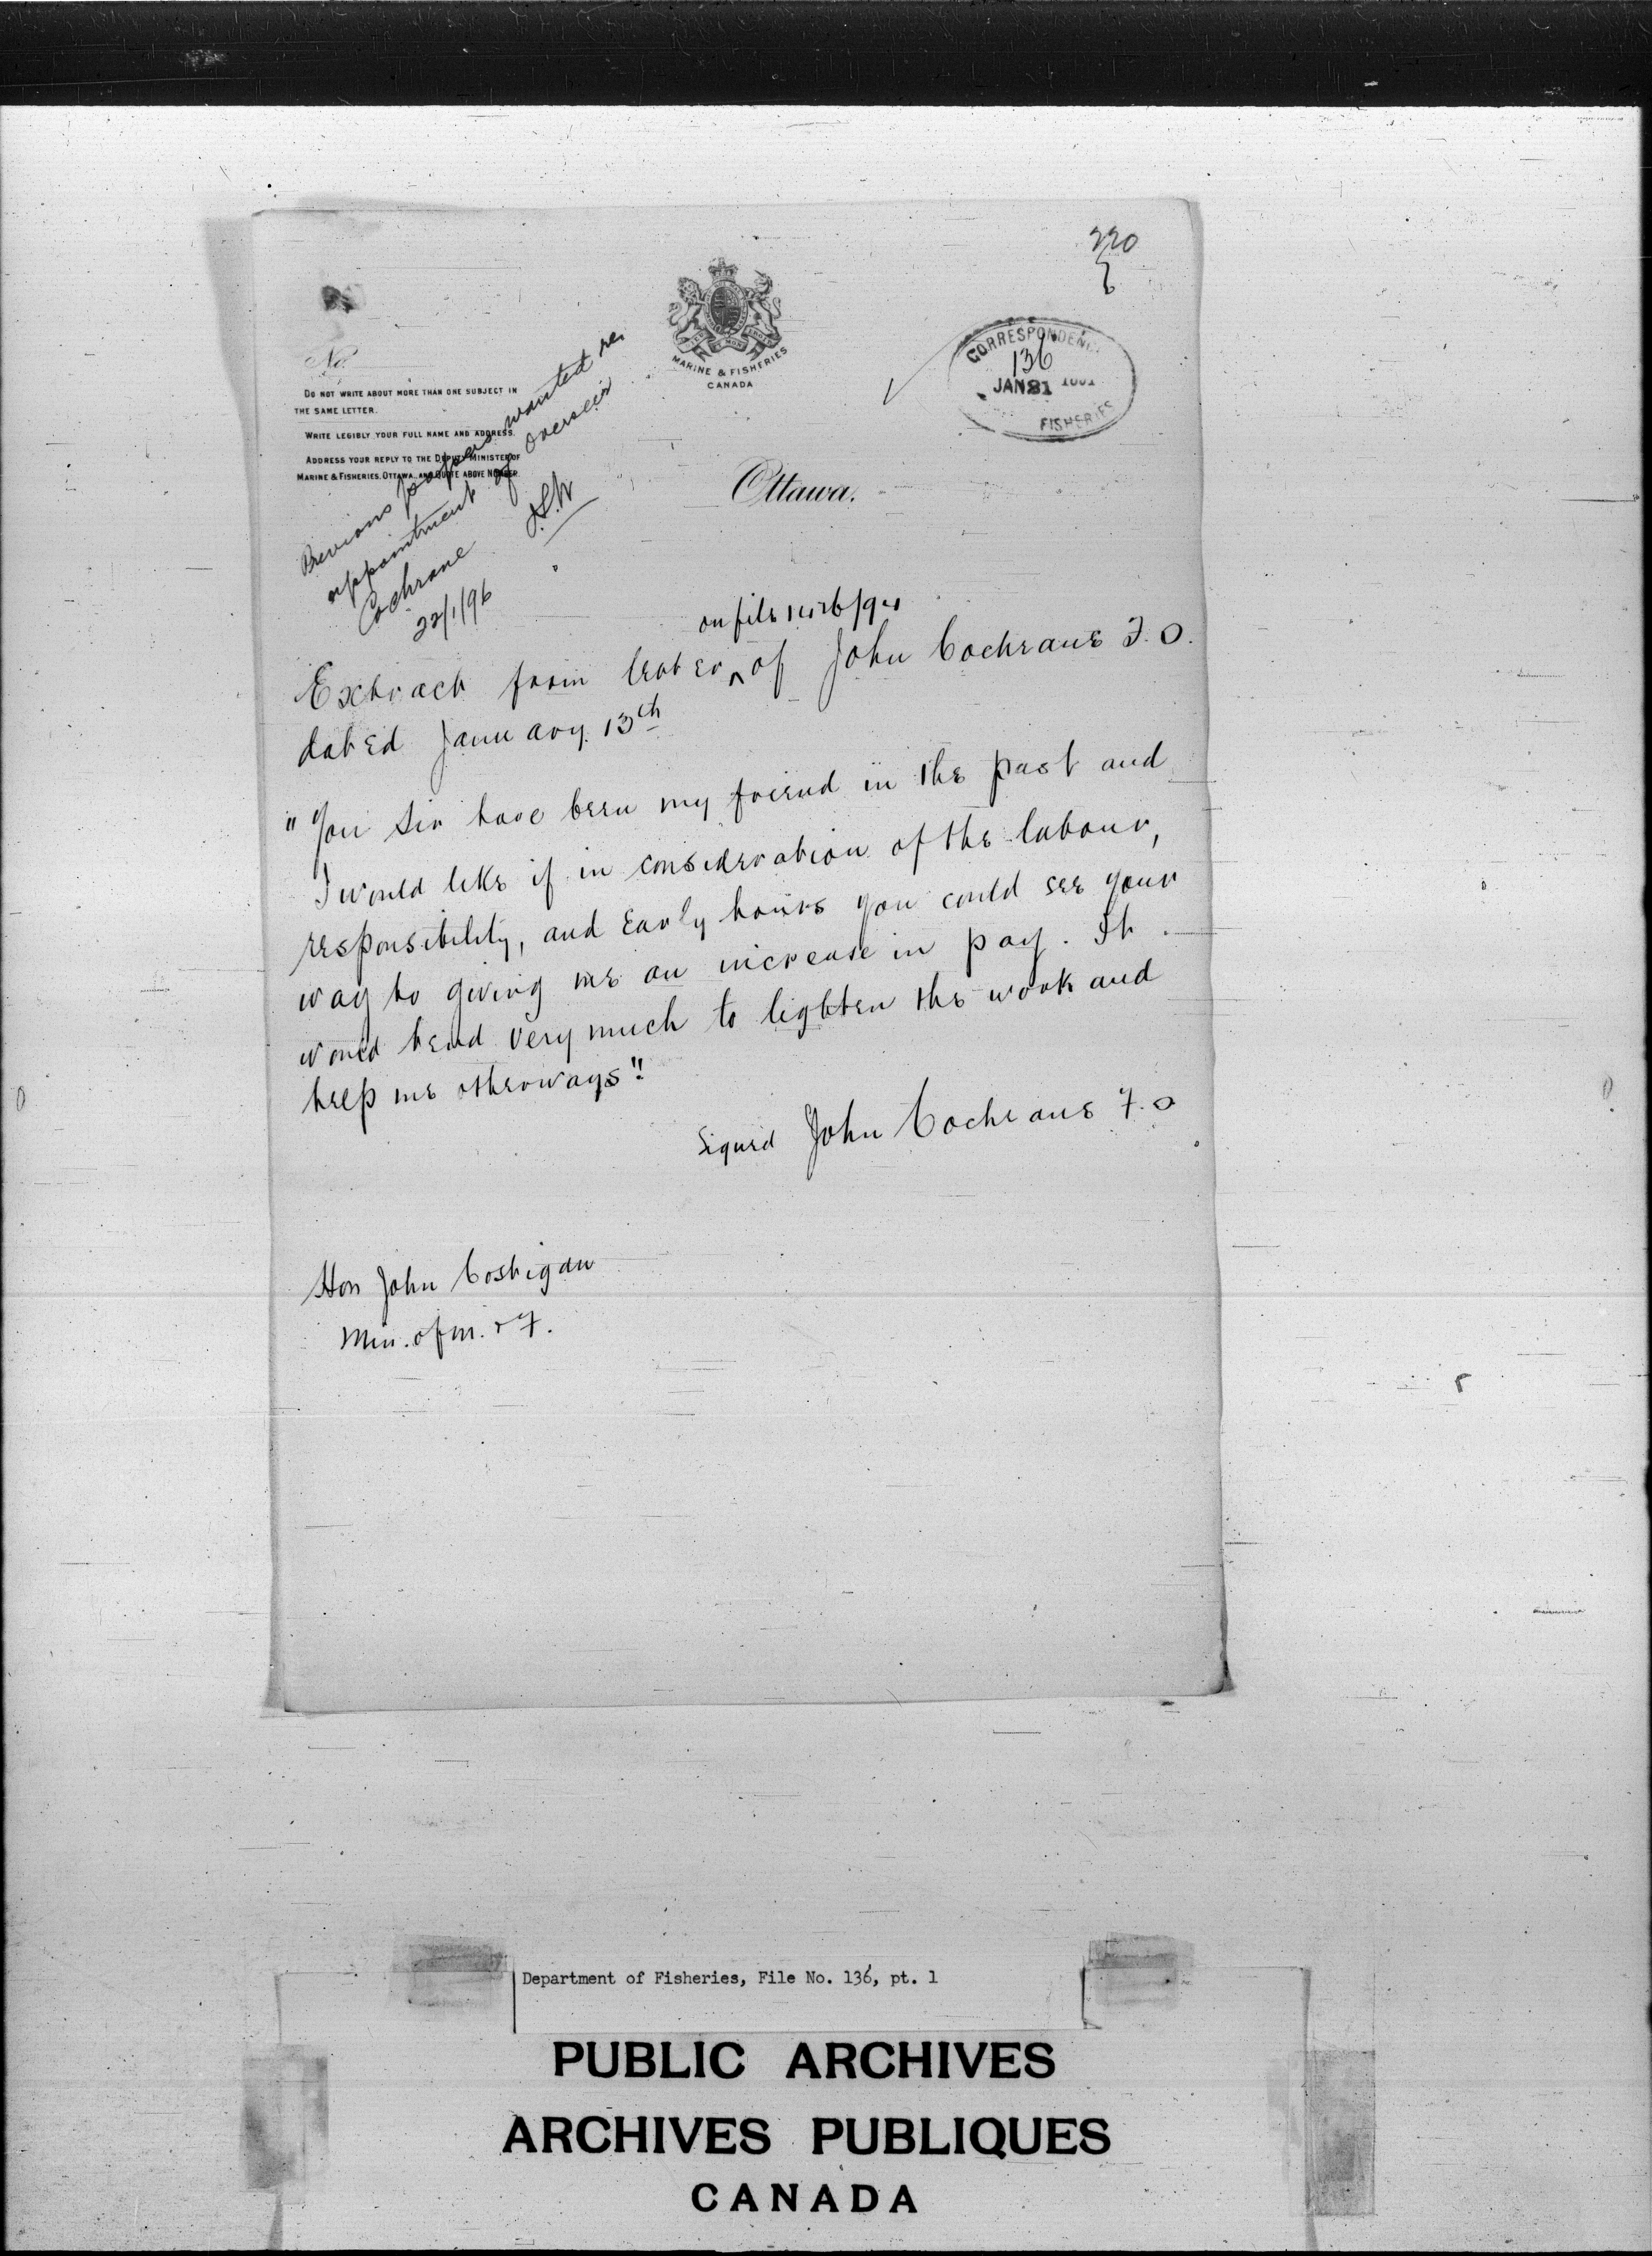 220
6
MARINE & FISHERIES
CANADA
CORRESPONDENCE
136
JAN 31
FISHERIES
No.
DO NOT WRITE ABOUT MORE THAN ONE SUBJECT IN
THE SAME LETTER.
WRITE LEGIBLY YOUR FULL NAME AND ADDRESS.
ADDRESS YOUR REPLY TO THE DEPUTY MINISTER OF
MARINE & FISHERIES, OTTAWA, AND QUOTE ABOVE NUMBER.
Previous papers wanted re.
appointment of Overseer
Cochrane
22/1/96
Ottawa.
on file
Extract from letter ^ of John Cochrane F.O.
dated January 13th
"You Sir have been my friend in the past and
I would like if in consideration of the labour,
responsibility, and Early hours you could see your
way to giving me an increase in pay. It
would tend very much to lighten the work and
help me otherways"
Signed John Cochrane F.O
Hon John Costigan
Min. of M. & F.
Department of Fisheries, File No. 136, pt. 1
PUBLIC ARCHIVES
ARCHIVES PUBLIQUES
CANADA